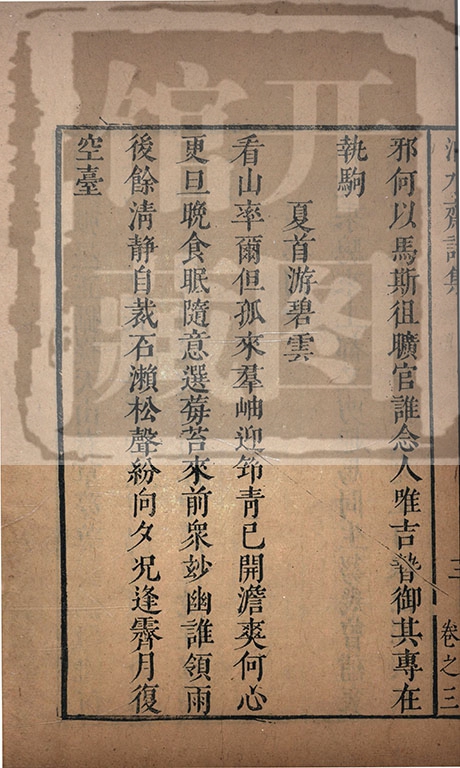 邪何以馬斯徂曠官誰念人唯吉暬御其專在
執駒
夏首游碧雲
看山率爾但孤來羣岫迎笻青已開澹爽何心
更旦晚食眠隨意選莓苔來前衆玅幽誰領雨
後餘淸靜自裁石瀨松聲紛向夕况逢霽月復
空臺
三
卷之三